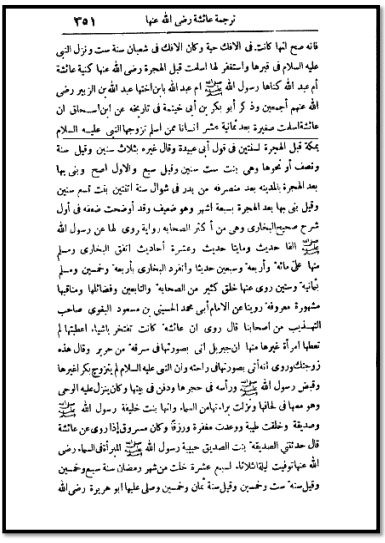 ترجمة عائشة رضى الله عنها ٣٥١
فانه صح انها كانت فى الافك حية وكان الافك فى شعبان سنة ست ونزل النبى
عليه السلام فى قبرها واستغفر لها اسلمت قبل الهجرة رضى الله عنها كنية عائشة
أم عبد الله كناها رسول الله ﷺ ام عبد الله بابن اختها عبد الله بن الزبير رضى
الله عنهم أجمعين وذكر أبو بكر بن أبى خيثمة فى تاريخه عن ابن اسحاق ان
عائشة اسلمت صغيرة بعد ثمانية عشر انسانا ممن اسلم تزوجها النبى عليه السلام
بمكة قبل الهجرة لسنتين فى قول أبى عبيدة وقال غيره بثلاث سنين وقيل سنة
ونصف أو نحوها وهى بنت ست سنين وقيل سبع والاول اصح وبنى بها
بعد الهجرة بالمدينه بعد منصرفه من بدر فى شوال سنة اثنتين بنت تسع سنين
وقيل بنى بها بعد الهجرة بسبعة اشهر وهو ضعيف وقد أوضحت ضعفه فى أول
شرح صحيح البخارى وهى من أكثر الصحابه رواية روى لها عن رسول الله
ﷺ الفا حديث ومايتا حديث وعشرة أحاديث اتفق البخارى ومسلم
منها على مائة وأربعة وسبعين حديثا وانفرد البخارى بأربعة وخمسين ومسلم
بثمانية وستين روى عنها خلق كثير من الصحابة والتابعين وفضائلها ومناقبها
مشهورة معروفة روينا عن الامام أبى محمد الحسينى بن مسعود البغوى صاحب
التهذيب من اصحابنا قال روى ان عائشة كانت تفتخر باشياء اعطيتها لم
تعطها امرأة غيرها منها ان جبريل اتى بصورتها فى سرقة من حرير وقال هذه
زوجتك وروى انه أتى بصورتها فى راحته وان النبى عليه السلام لم يتزوج بكرا غيرها
وقبض رسول الله ﷺ ورأسه فى حجرها ودفن فى بيتها وكان ينزل عليه الوحى
وهو معها فى لحافها ونزلت براءتها من السماء وانها بنت خليفة رسول الله ﷺ
وصديقة وخلقت طيبة ووعدت مغفرة ورزقا وكان مسروق إذا روى عن عائشة
قال حدثتنى الصديقة بنت الصديق حبيبة رسول الله ﷺ المبرأة فى السماء رضى
الله عنها توفيت ليلة الثلاثاء لسبع عشرة خلت من شهر رمضان سنة سبع وخمسين
وقيل سنة ست وخمسين وقيل سنة ثمان وخمسين وصلى عليها ابو هريرة رضى الله